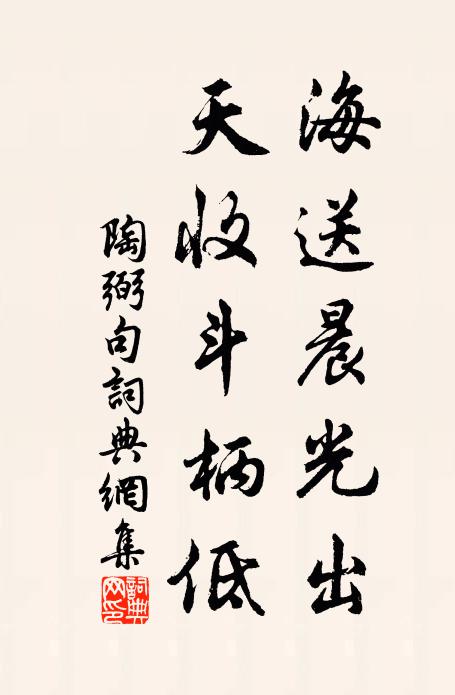 海送晨光出
天收斗柄低
陶弼句詞典網集
詞典網印